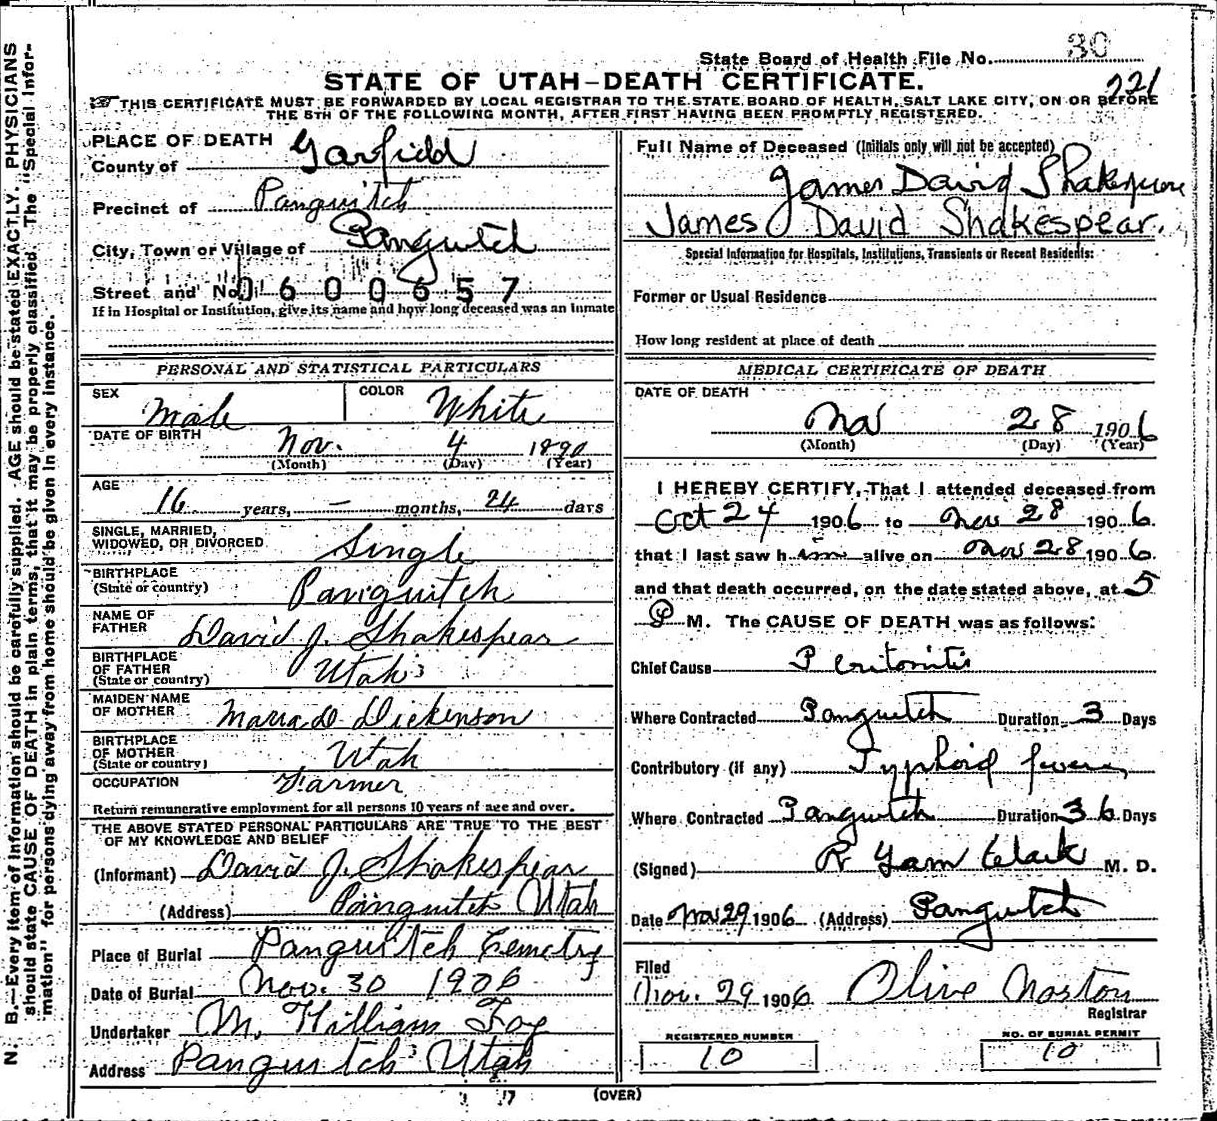 30
State Board of Health File No.
STATE OF UTAH—DEATH CERTIFICATE.
221
THIS CERTIFICATE MUST BE FORWARDED BY LOCAL REGISTRAR TO THE STATE BOARD OF HEALTH, SALT LAKE CITY, ON OR BEFORE
THE 5TH OF THE FOLLOWING MONTH, AFTER FIRST HAVING BEEN PROMPTLY REGISTERED.
PLACE OF DEATH
County of Garfield
Precinct of Panguitch
City, Town or Village of Panguitch
Street and No. 0600657
If in Hospital or Institution, give its name and how long deceased was an inmate
PERSONAL AND STATISTICAL PARTICULARS
SEX Male COLOR White
DATE OF BIRTH Nov. 4 1890
(Month) (Day) (Year)
AGE 16 years, — months, 24 days
SINGLE, MARRIED,
WIDOWED, OR DIVORCED Single
BIRTHPLACE
(State or country) Panguitch
NAME OF
FATHER David J. Shakespear
BIRTHPLACE
OF FATHER
(State or country) Utah
MAIDEN NAME
OF MOTHER Maria D. Dickenson
BIRTHPLACE
OF MOTHER
(State or country) Utah
OCCUPATION Farmer
Return remunerative employment for all persons 10 years of age and over.
THE ABOVE STATED PERSONAL PARTICULARS ARE TRUE TO THE BEST
OF MY KNOWLEDGE AND BELIEF
(Informant) David J. Shakespear
(Address) Panguitch Utah
Place of Burial Panguitch Cemetry
Date of Burial Nov. 30 1906
Undertaker M. William Foy
Address Panguitch Utah
Full Name of Deceased (Initials only will not be accepted)
James David Shakespeare
James David Shakespear.
Special Information for Hospitals, Institutions, Transients or Recent Residents:
Former or Usual Residence
How long resident at place of death
MEDICAL CERTIFICATE OF DEATH
DATE OF DEATH
Nov 28 1906
(Month) (Day) (Year)
I HEREBY CERTIFY, That I attended deceased from
Oct 24 1906 to Nov 28 1906.
that I last saw him alive on Nov 28 1906.
and that death occurred, on the date stated above, at 5
P M. The CAUSE OF DEATH was as follows:
Chief Cause Peritonitis
Where Contracted Panguitch Duration 3 Days
Contributory (if any) Typhoid fever
Where Contracted Panguitch Duration 36 Days
(Signed) R Garn Clark M. D.
Date Nov 29 1906 (Address) Panguitch
Filed
Nov. 29 1906 Olive Norton
Registrar
REGISTERED NUMBER
10
NO. OF BURIAL PERMIT
10
(OVER)
N. B.—Every item of information should be carefully supplied. AGE should be stated EXACTLY. PHYSICIANS
should state CAUSE OF DEATH in plain terms, that it may be properly classified. The "Special Infor-
mation" for persons dying away from home should be given in every instance.